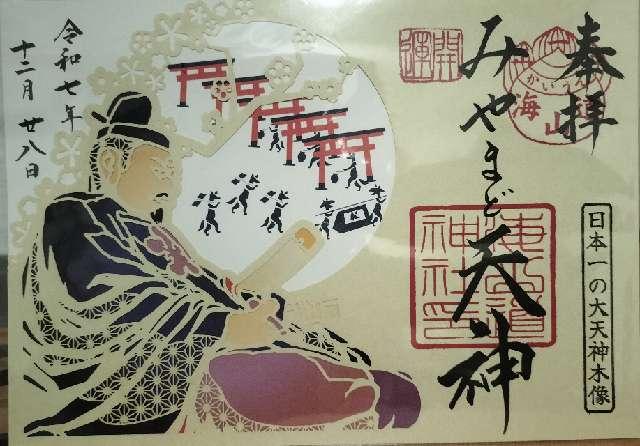 奉拝
開運
海山
みやまど天神
日本一の大天神木像
令和七年
十二月廿八日